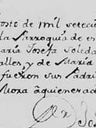 onso de mil setecie
la Parroquia de en
María Josefa Soleda
alles, y de María
fueron sus Padri
Mora aquienes ad